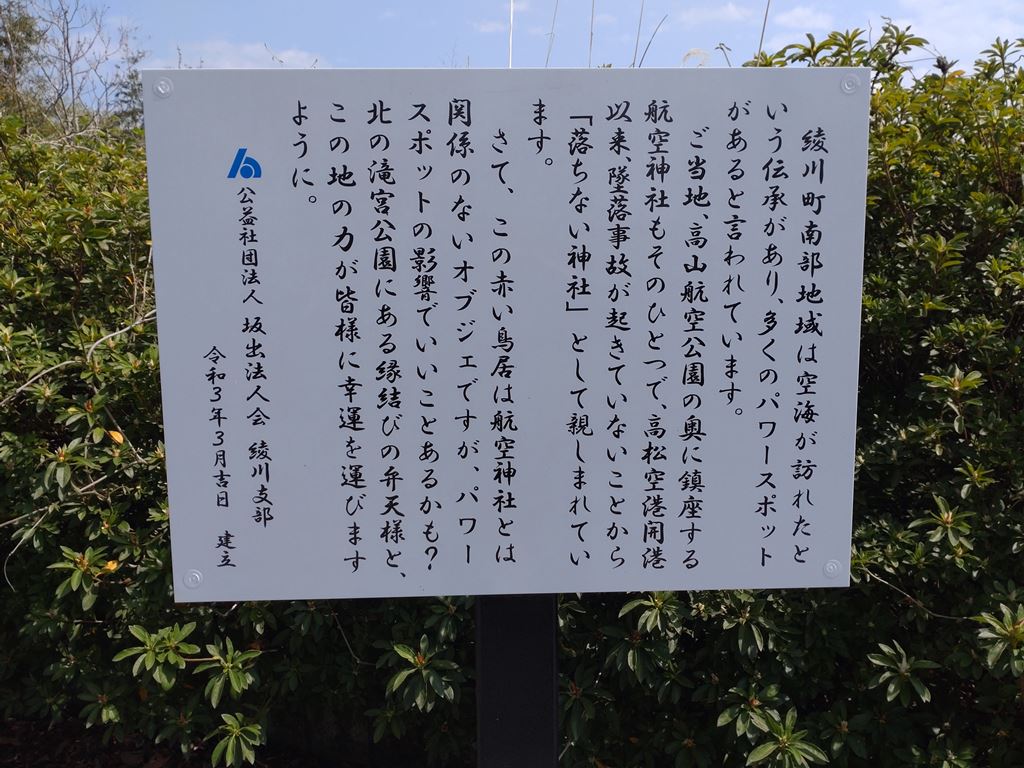 綾川町南部地域は空海が訪れたと
いう伝承があり、多くのパワースポット
があると言われています。
ご当地、高山航空公園の奥に鎮座する
航空神社もそのひとつで、高松空港開港
以来、墜落事故が起きていないことから
「落ちない神社」として親しまれてい
ます。
さて、この赤い鳥居は航空神社とは
関係のないオブジェですが、パワー
スポットの影響でいいことあるかも？
北の滝宮公園にある縁結びの弁天様と、
この地の力が皆様に幸運を運びます
ように。
公益社団法人 坂出法人会 綾川支部
令和3年3月吉日 建立